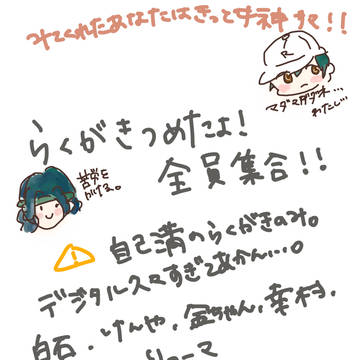 みてくれたあなたはきっと女神サマ!!
R
マダマダダネ…
わたし…
らくがきつめたよ!
全員集合!!
苦労を
かける。
⚠ 自己満のらくがきのみ。
デジタル久々すぎてあかん…。
白石、けんや、金ちゃん、幸村、
リョーマ